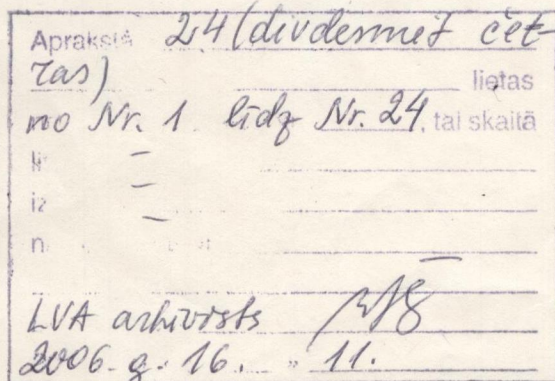 Aprakstā 24 (divdesmit čet-
ras) lietas
no Nr. 1 līdz Nr. 24, tai skaitā
–
–
–
–
LVA arhivists
2006. g. 16. " 11.